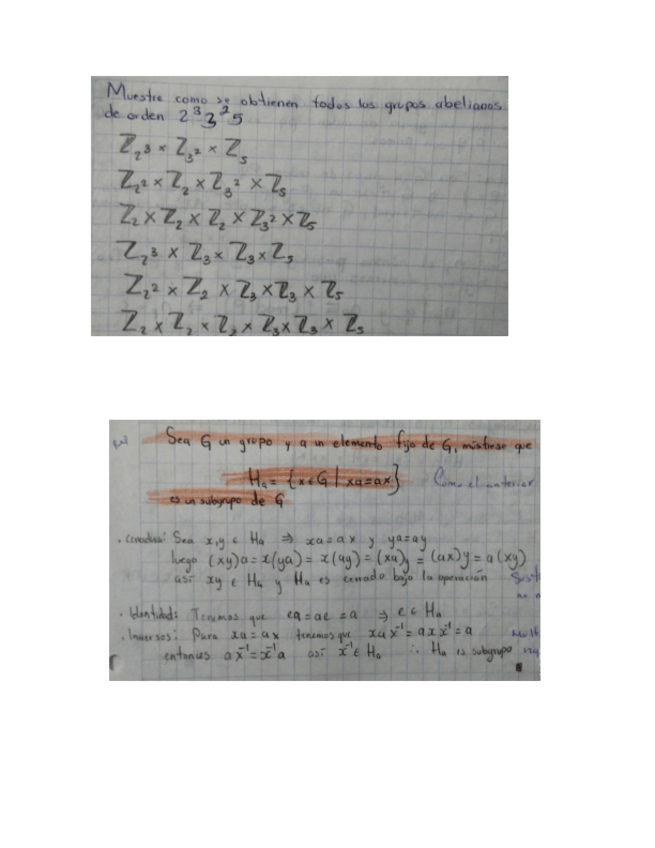 Muestre como se obtienen todos los grupos abelianos
de orden 2³3²5
ℤ₂³ × ℤ₃² × ℤ₅
ℤ₂² × ℤ₂ × ℤ₃² × ℤ₅
ℤ₂ × ℤ₂ × ℤ₂ × ℤ₃² × ℤ₅
ℤ₂³ × ℤ₃ × ℤ₃ × ℤ₅
ℤ₂² × ℤ₂ × ℤ₃ × ℤ₃ × ℤ₅
ℤ₂ × ℤ₂ × ℤ₂ × ℤ₃ × ℤ₃ × ℤ₅
Sea G un grupo y a un elemento fijo de G, muéstrese que
Hₐ = {x ∈ G | xa = ax} Como el anterior
es un subgrupo de G
. cerradura: Sea x,y ∈ Hₐ ⇒ xa = ax y ya = ay
luego (xy)a = x(ya) = x(ay) = (xa)y = (ax)y = a(xy)
así xy ∈ Hₐ y Hₐ es cerrado bajo la operación
. Identidad: Tenemos que ea = ae = a ⇒ e ∈ Hₐ
. Inversos: Para xa = ax tenemos que xax⁻¹ = axx⁻¹ = a
entonces ax⁻¹ = x⁻¹a así x⁻¹ ∈ Hₐ ∴ Hₐ es subgrupo